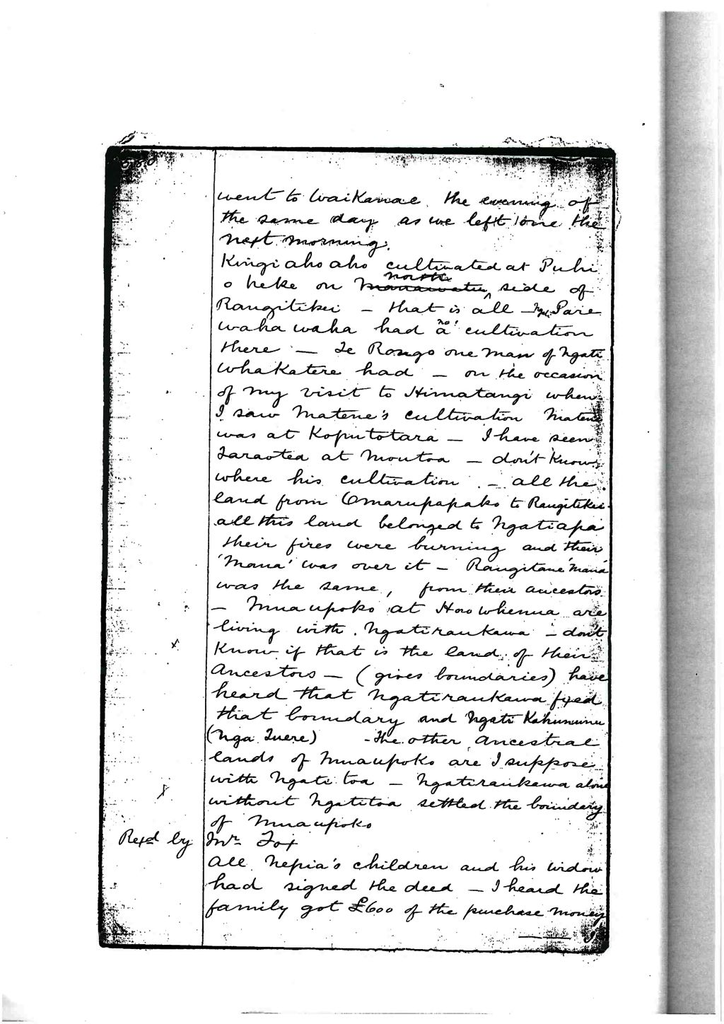 went to Waikanae the evening of
the same day as we left Otane the
next morning.
Kingi aho aho cultivated at Puhi
o heke on Manawatu north side of
Rangitikei – that is all – Pare
waha waha had no cultivation
there – Te Rongo one man of Ngati
whakatere had – on the occasion
of my visit to Himatangi when
I saw Matene's cultivation Matene
was at Koputotara – I have seen
Taraotea at Moutoa – don't know
where his cultivation – all the
land from Omarupapako to Rangitikei
all this land belonged to Ngatiapa
their fires were burning and their
'mana' was over it – Rangitane 'mana'
was the same, from their ancestors
– Muaupoko at Horowhenua are
living with Ngatiraukawa – don't
know if that is the land of their
Ancestors – (gives boundaries) have
heard that Ngatiraukawa fixed
that boundary and Ngati Kahununu
(Nga Tuere) – the other ancestral
lands of Muaupoko are I suppose
with Ngati toa – Ngatiraukawa alone
without Ngatitoa settled the boundary
of Muaupoko
Rexd by Mr. Fox
All Nepia's children and his widow
had signed the deed – I heard the
family got £600 of the purchase money